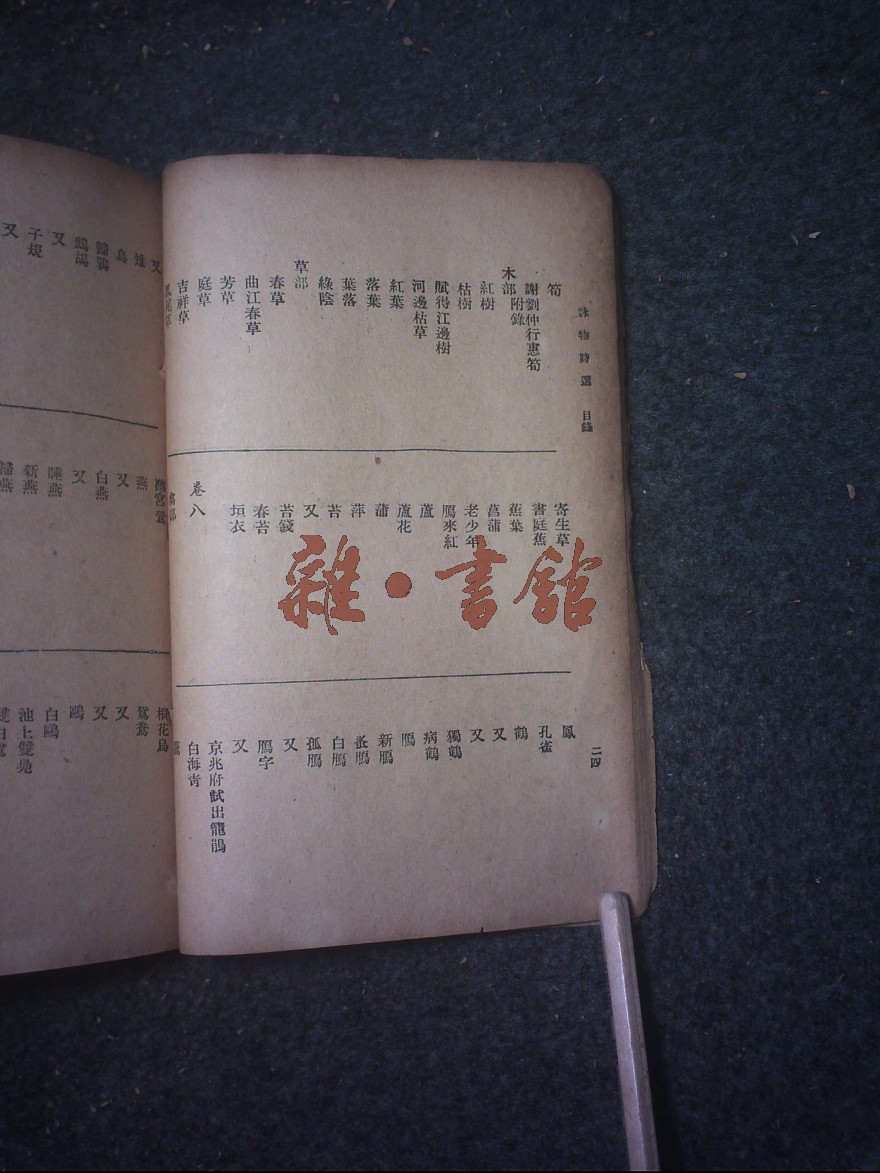 詠物詩選 目錄
二四
筍
謝劉仲行惠筍
木部附錄
紅樹
枯樹
賦得江邊樹
河邊枯草
紅葉
落葉
葉落
綠陰
草部
春草
曲江春草
芳草
庭草
吉祥草
鳳尾草
寄生草
書庭蕉
蕉葉
菖蒲
老少年
鴈來紅
蘆
蘆花
蒲
萍
苔
又
苔錢
春苔
垣衣
卷八
鳳
孔雀
鶴
又
又
獨鶴
病鶴
鴈
新鴈
蚤鴈
白鴈
孤鴈
又
鴈字
又
京兆府試出籠鶻
白海青
又
雉
烏
歸鴉
鷓鴣
又
子規
又
燕
又
白燕
又
睡燕
新燕
歸燕
桐花鳥
鴛鴦
又
又
鷗
白鷗
池上雙鳧
雜·書館